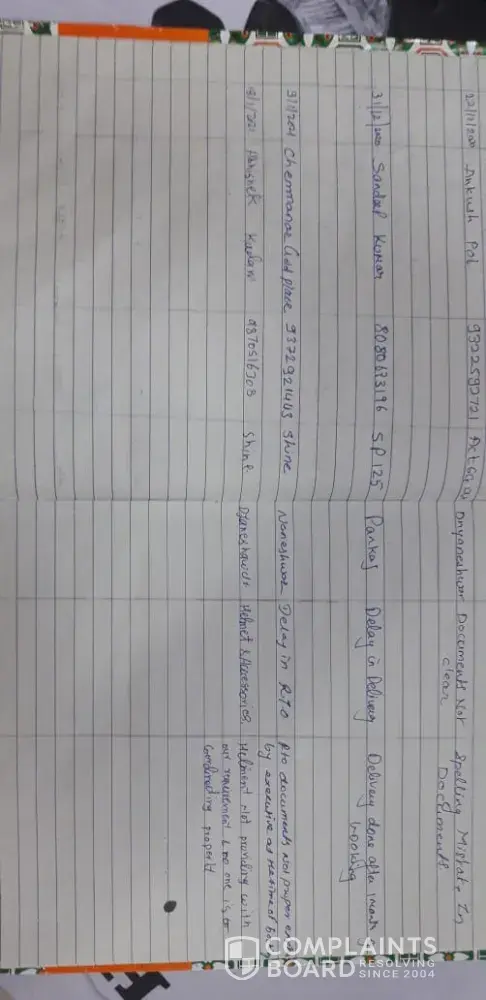 22/12/2020 Ankush Pol 9322592721 Activa Dnyaneshwar Documents Not Spelling Mistake In
clear Documents
31/12/2020 Sandeep Kumar 8080693196 SP 125 Pankaj Delay in Delivery Delivery done after 1 month
booking
3/1/2021 Chemmanoe Gold place 9372921403 Shine Naneshwar Delay in RTO Rto documents Not proper
by executive at the time of
18/1/2021 Abhishek Kadam 9870516709 Shine Dyaneshawar Helmet & Accessories Helment Not providing with
our requirement & no one is
Cordinating properly
COMPLAINTS
BOARD RESOLVING
SINCE 2004